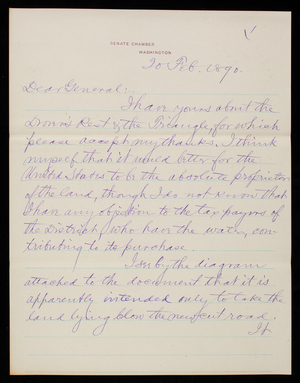 SENATE CHAMBER
WASHINGTON
20 Feb. 1890.
Dear General:
I have yours about the
Lion's Rest & the Triangle, for which
please accept my thanks. I think
myself that it would better for the
United States to be the absolute proprietor
of the land, though I do not know that
I have any objection to the tax payers of
the District, who have the water, con-
tributing to its purchase
I see by the diagram
attached to the document that it is
apparently intended only to take the
land lying below the new cut road.
It